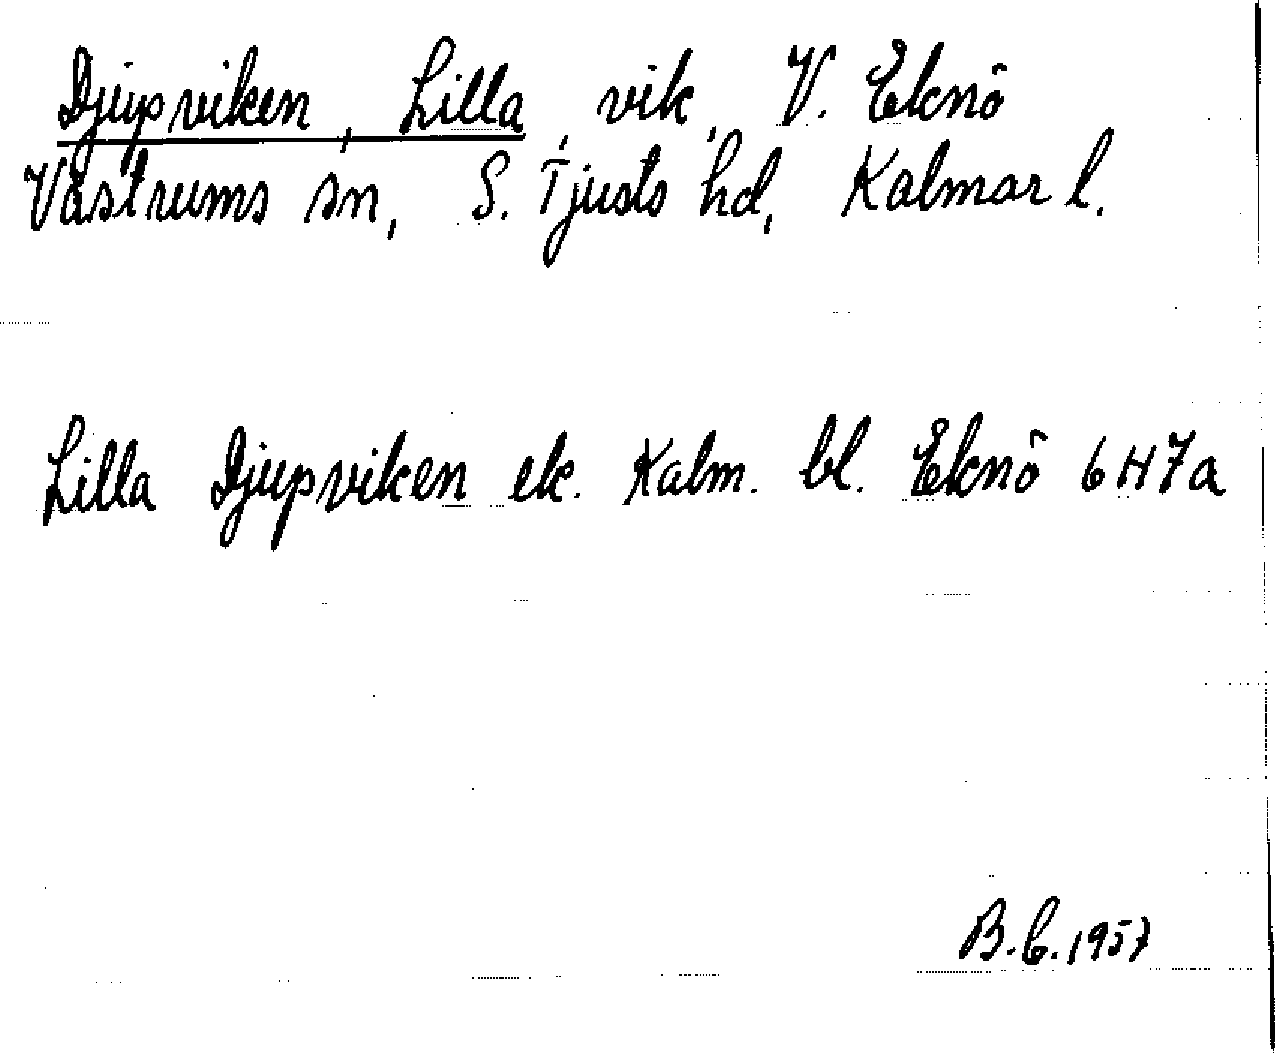 Djupviken, Lilla, vik, V. Eknö
Västrums sn, S. Tjusts hd, Kalmar l.
Lilla Djupviken ek. Kalm. bl. Eknö 6H7a
B.C. 1957